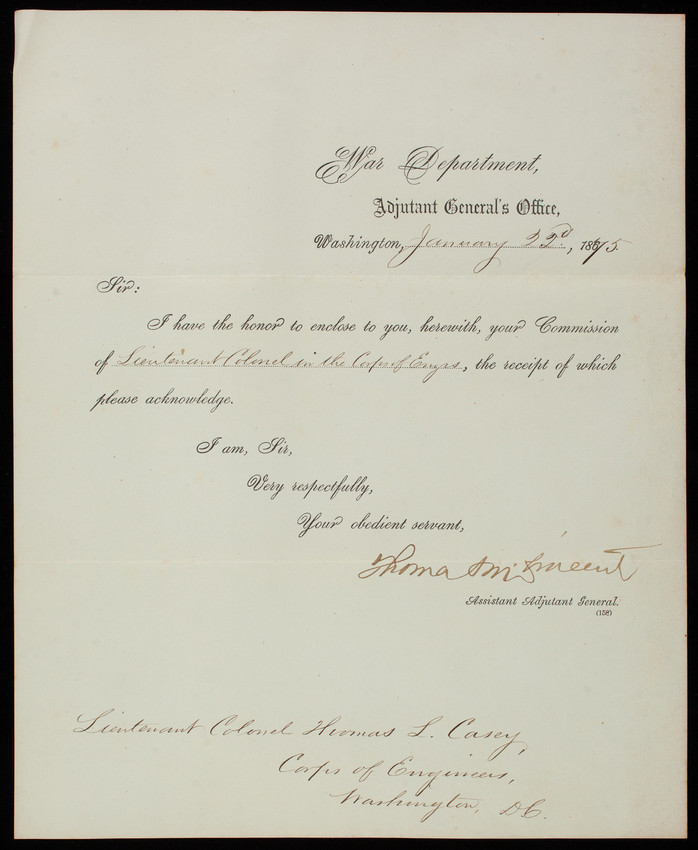 War Department,
Adjutant General's Office,
Washington, January 22d, 1875.
Sir:
I have the honor to enclose to you, herewith, your Commission
of Lieutenant Colonel in the Corps of Engrs, the receipt of which
please acknowledge.
I am, Sir,
Very respectfully,
Your obedient servant,
Thomas M. Vincent
Assistant Adjutant General.
(158)
Lieutenant Colonel Thomas L. Casey,
Corps of Engineers,
Washington, D.C.